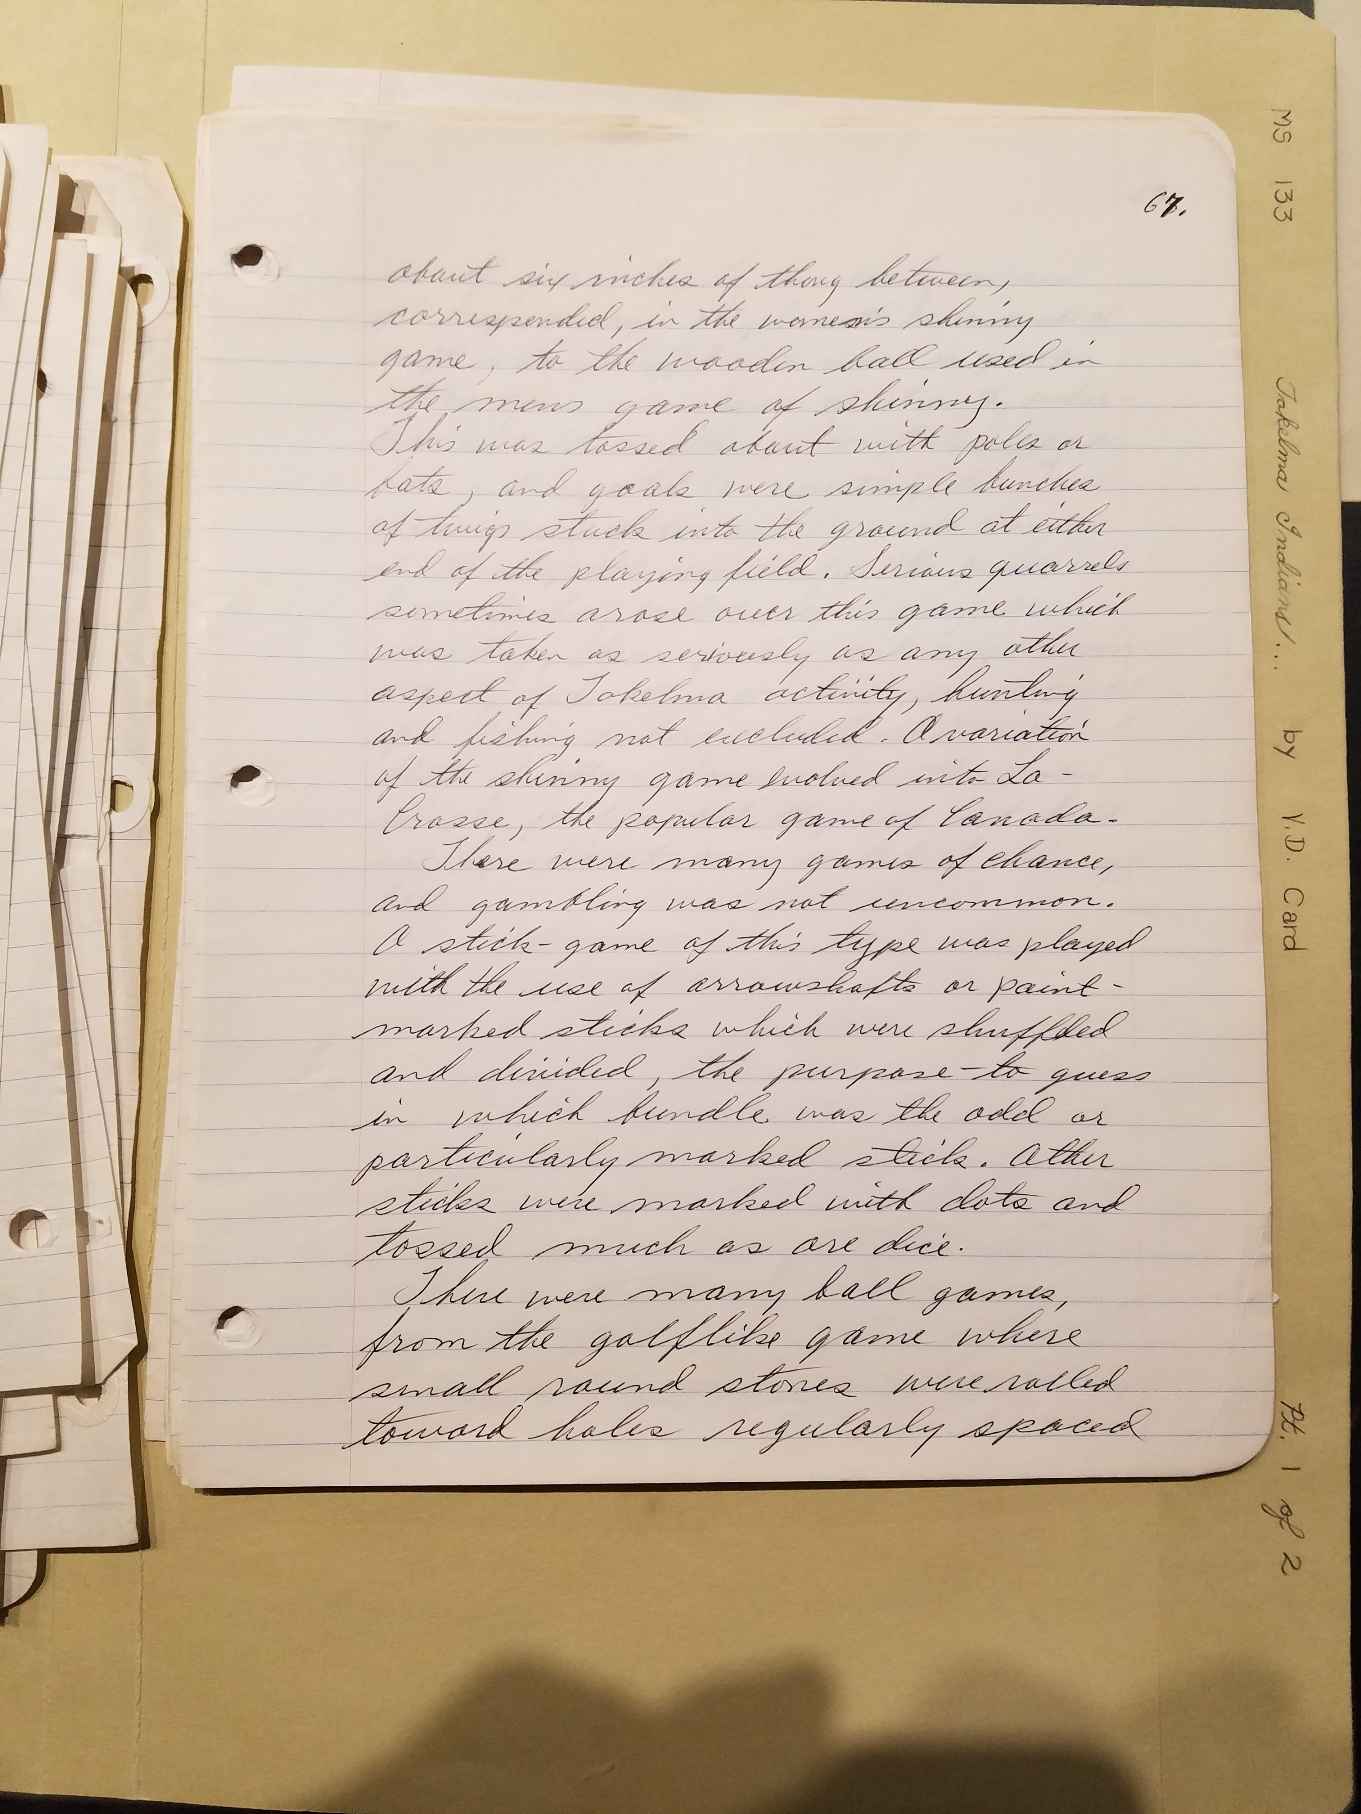 67.
about six inches of thong between,
corresponded, in the women's shinny
game, to the wooden ball used in
the mens game of shinny.
This was tossed about with poles or
bats, and goals were simple bunches
of twigs stuck into the ground at either
end of the playing field. Serious quarrels
sometimes arose over this game which
was taken as seriously as any other
aspect of Takelma activity, hunting
and fishing not excluded. A variation
of the shinny game evolved into La-
Crosse, the popular game of Canada.
There were many games of chance,
and gambling was not uncommon.
A stick-game of this type was played
with the use of arrowshafts or paint-
marked sticks which were shuffled
and divided, the purpose-to guess
in which bundle was the odd or
particularly marked stick. Other
sticks were marked with dots and
tossed much as are dice.
There were many ball games,
from the golflike game where
small round stones were rolled
toward holes regularly spaced
MS 133 Takelma Indians... by V.D. Card Pt. 1 of 2